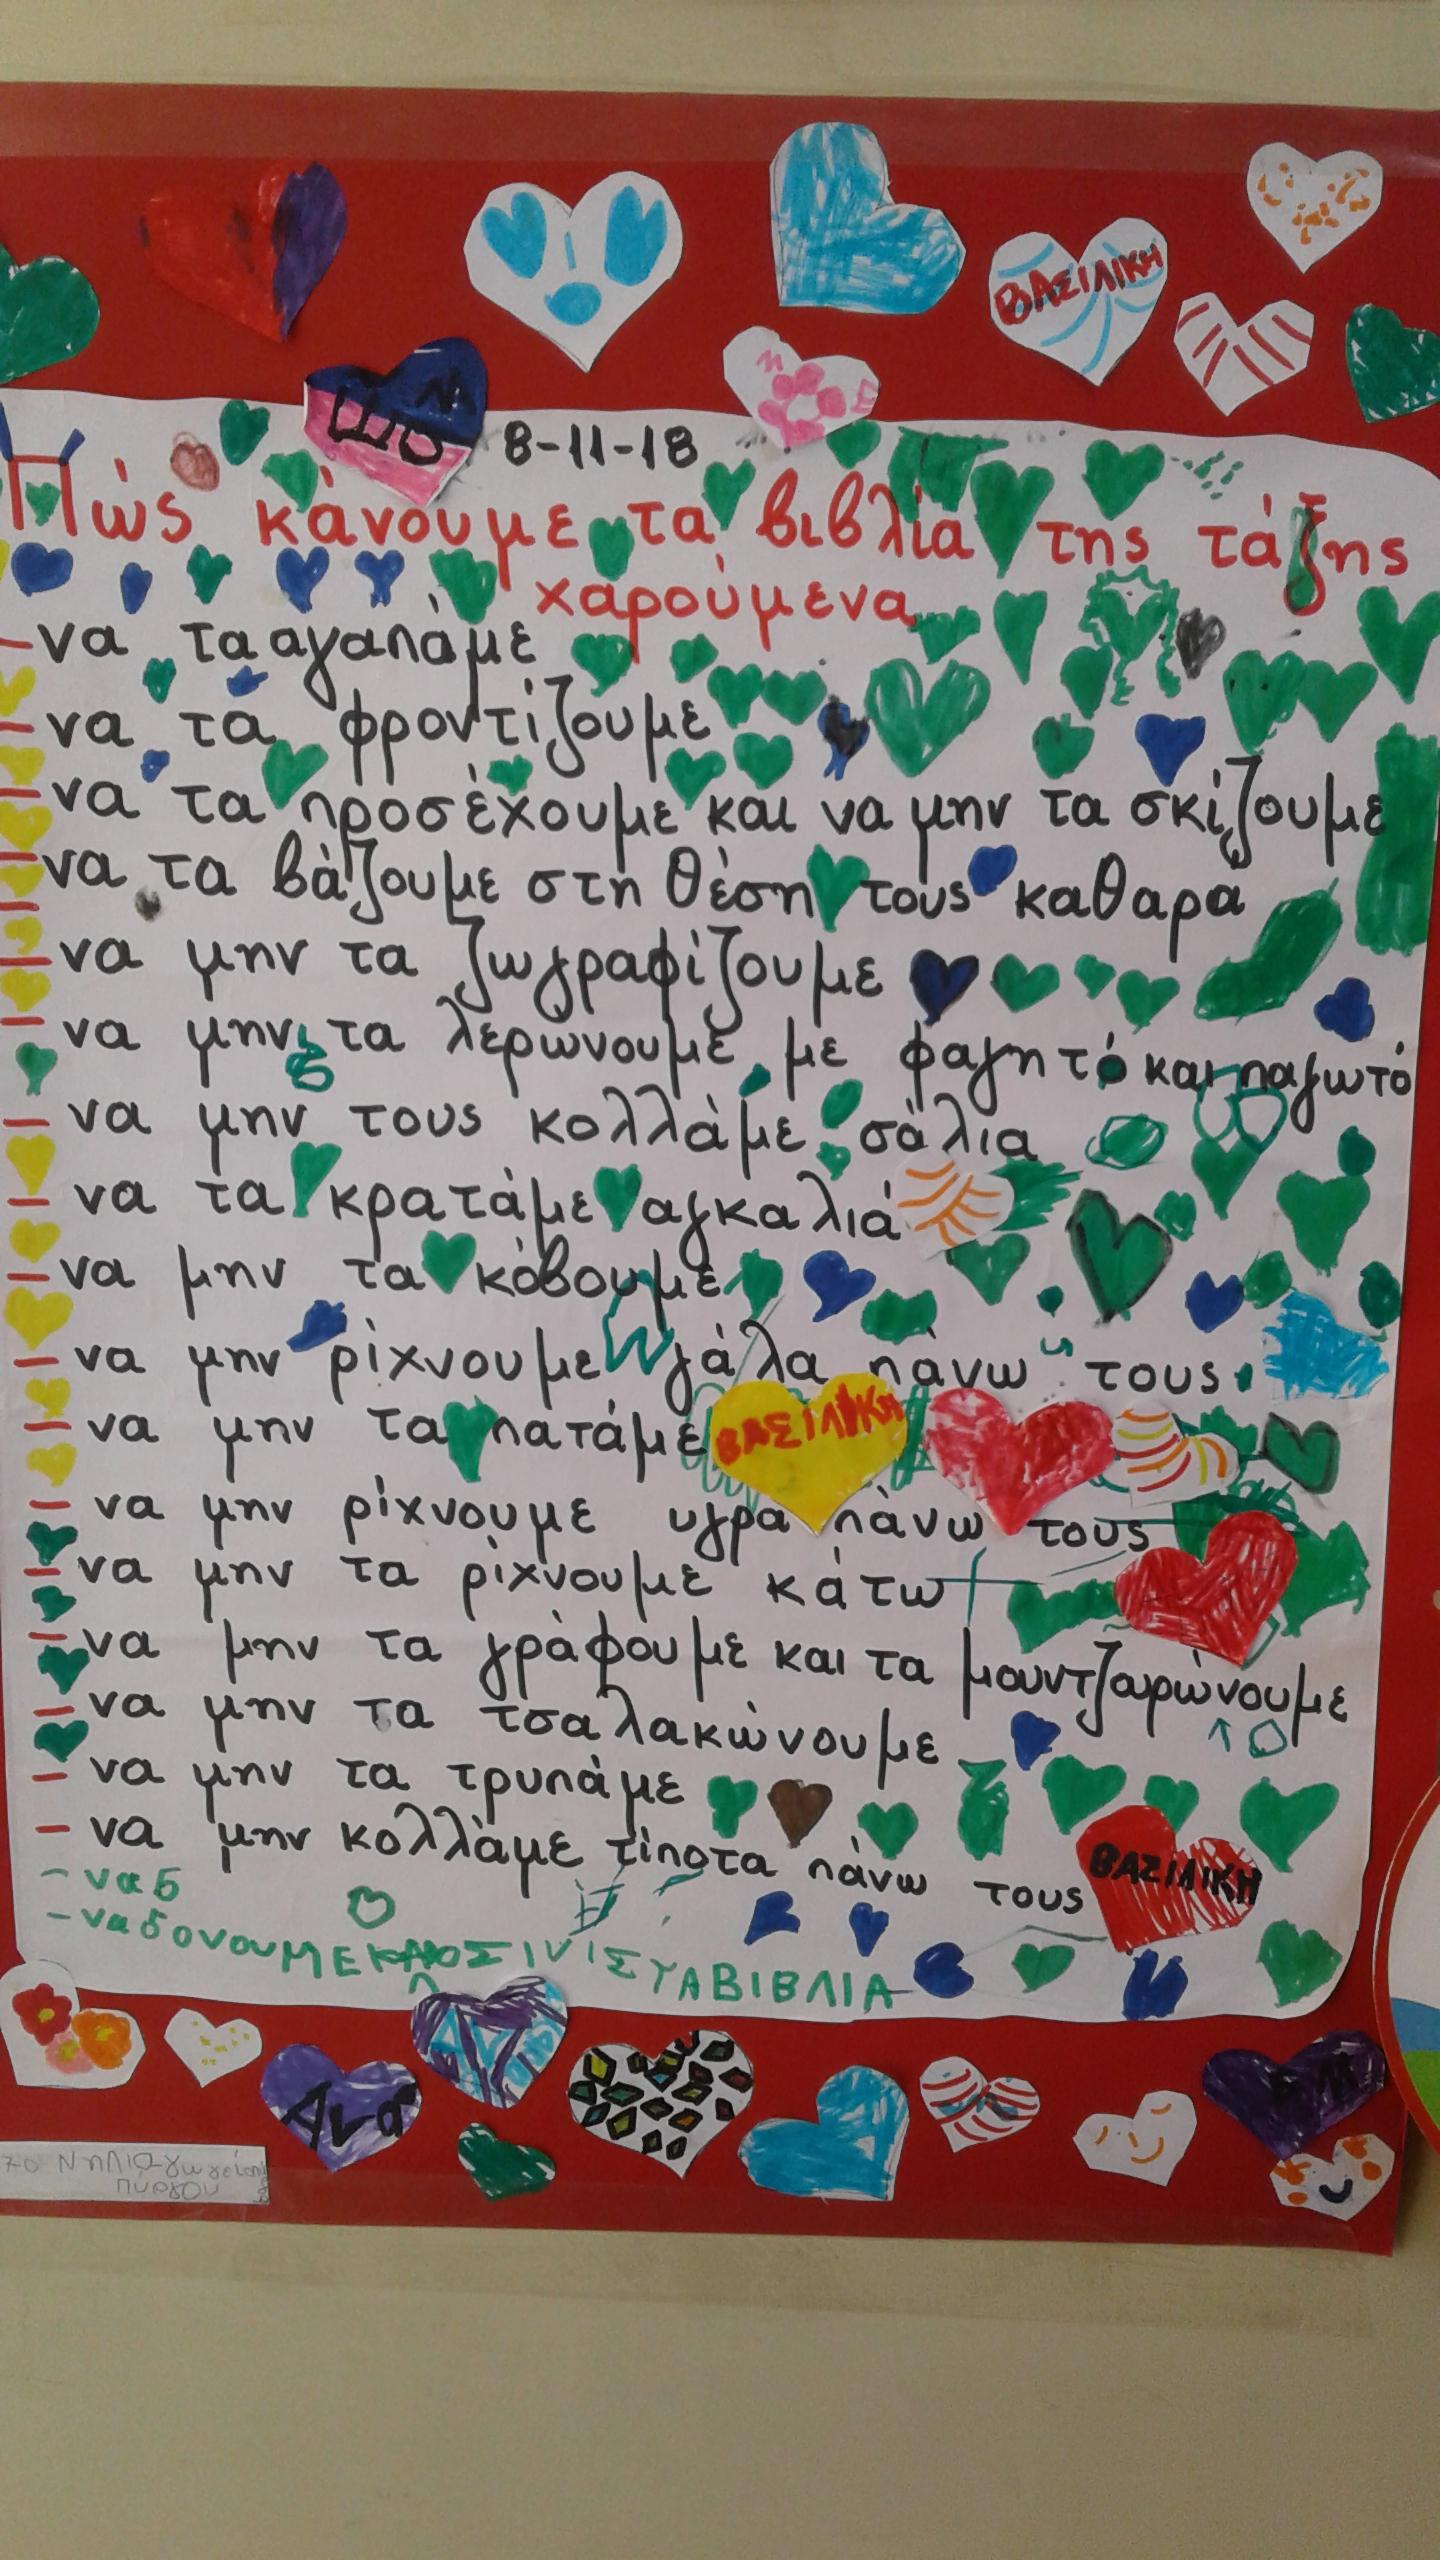 ΒΑΣΙΛΙΚΗ
8-11-18
Πώς κάνουμε τα βιβλία της τάξης
χαρούμενα
-να τα αγαπάμε
-να τα φροντίζουμε
-να τα προσέχουμε και να μην τα σκίζουμε
-να τα βάζουμε στη θέση τους καθαρά
-να μην τα ζωγραφίζουμε
-να μην τα λερώνουμε με φαγητό και παγωτό
-να μην τους κολλάμε σάλια
-να τα κρατάμε αγκαλιά
-να μην τα κόβουμε
-να μην ρίχνουμε γάλα πάνω τους
-να μην τα πατάμε
ΒΑΣΙΛΙΚΗ
-να μην ρίχνουμε υγρα πάνω τους
-να μην τα ρίχνουμε κάτω
-να μην τα γράφουμε και τα μουντζουρώνουμε
-να μην τα τσαλακώνουμε
-να μην τα τρυπάμε
-να μην κολλάμε τίποτα πάνω τους
ΒΑΣΙΛΙΚΗ
-να δ
-να δονουΜΕ ΤΑΒΙΒΛΙΑ
Ανα
7ο Νηπιαγωγείο
Πύργου